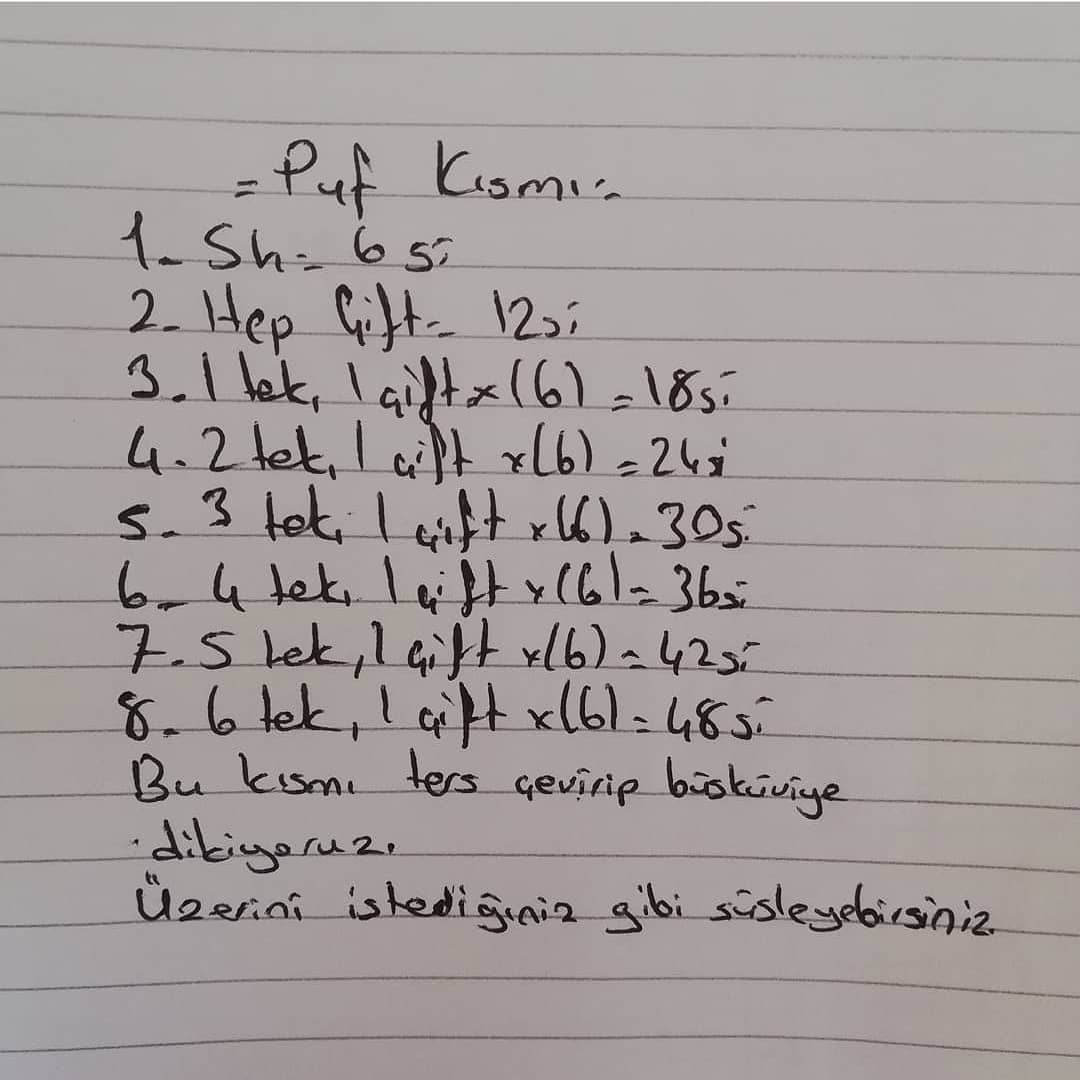 = Puf Kısmı =
1- Sh = 6 si
2- Hep Çift = 12 si
3. 1 tek, 1 çift x (6) = 18 si
4. 2 tek, 1 çift x (6) = 24 si
5- 3 tek, 1 çift x (6) = 30 si
6- 4 tek, 1 çift x (6) = 36 si
7. 5 tek, 1 çift x (6) = 42 si
8- 6 tek, 1 çift x (6) = 48 si
Bu kısmı ters çevirip büsküviye
dikiyoruz.
Üzerini istediğiniz gibi süsleyebirsiniz.